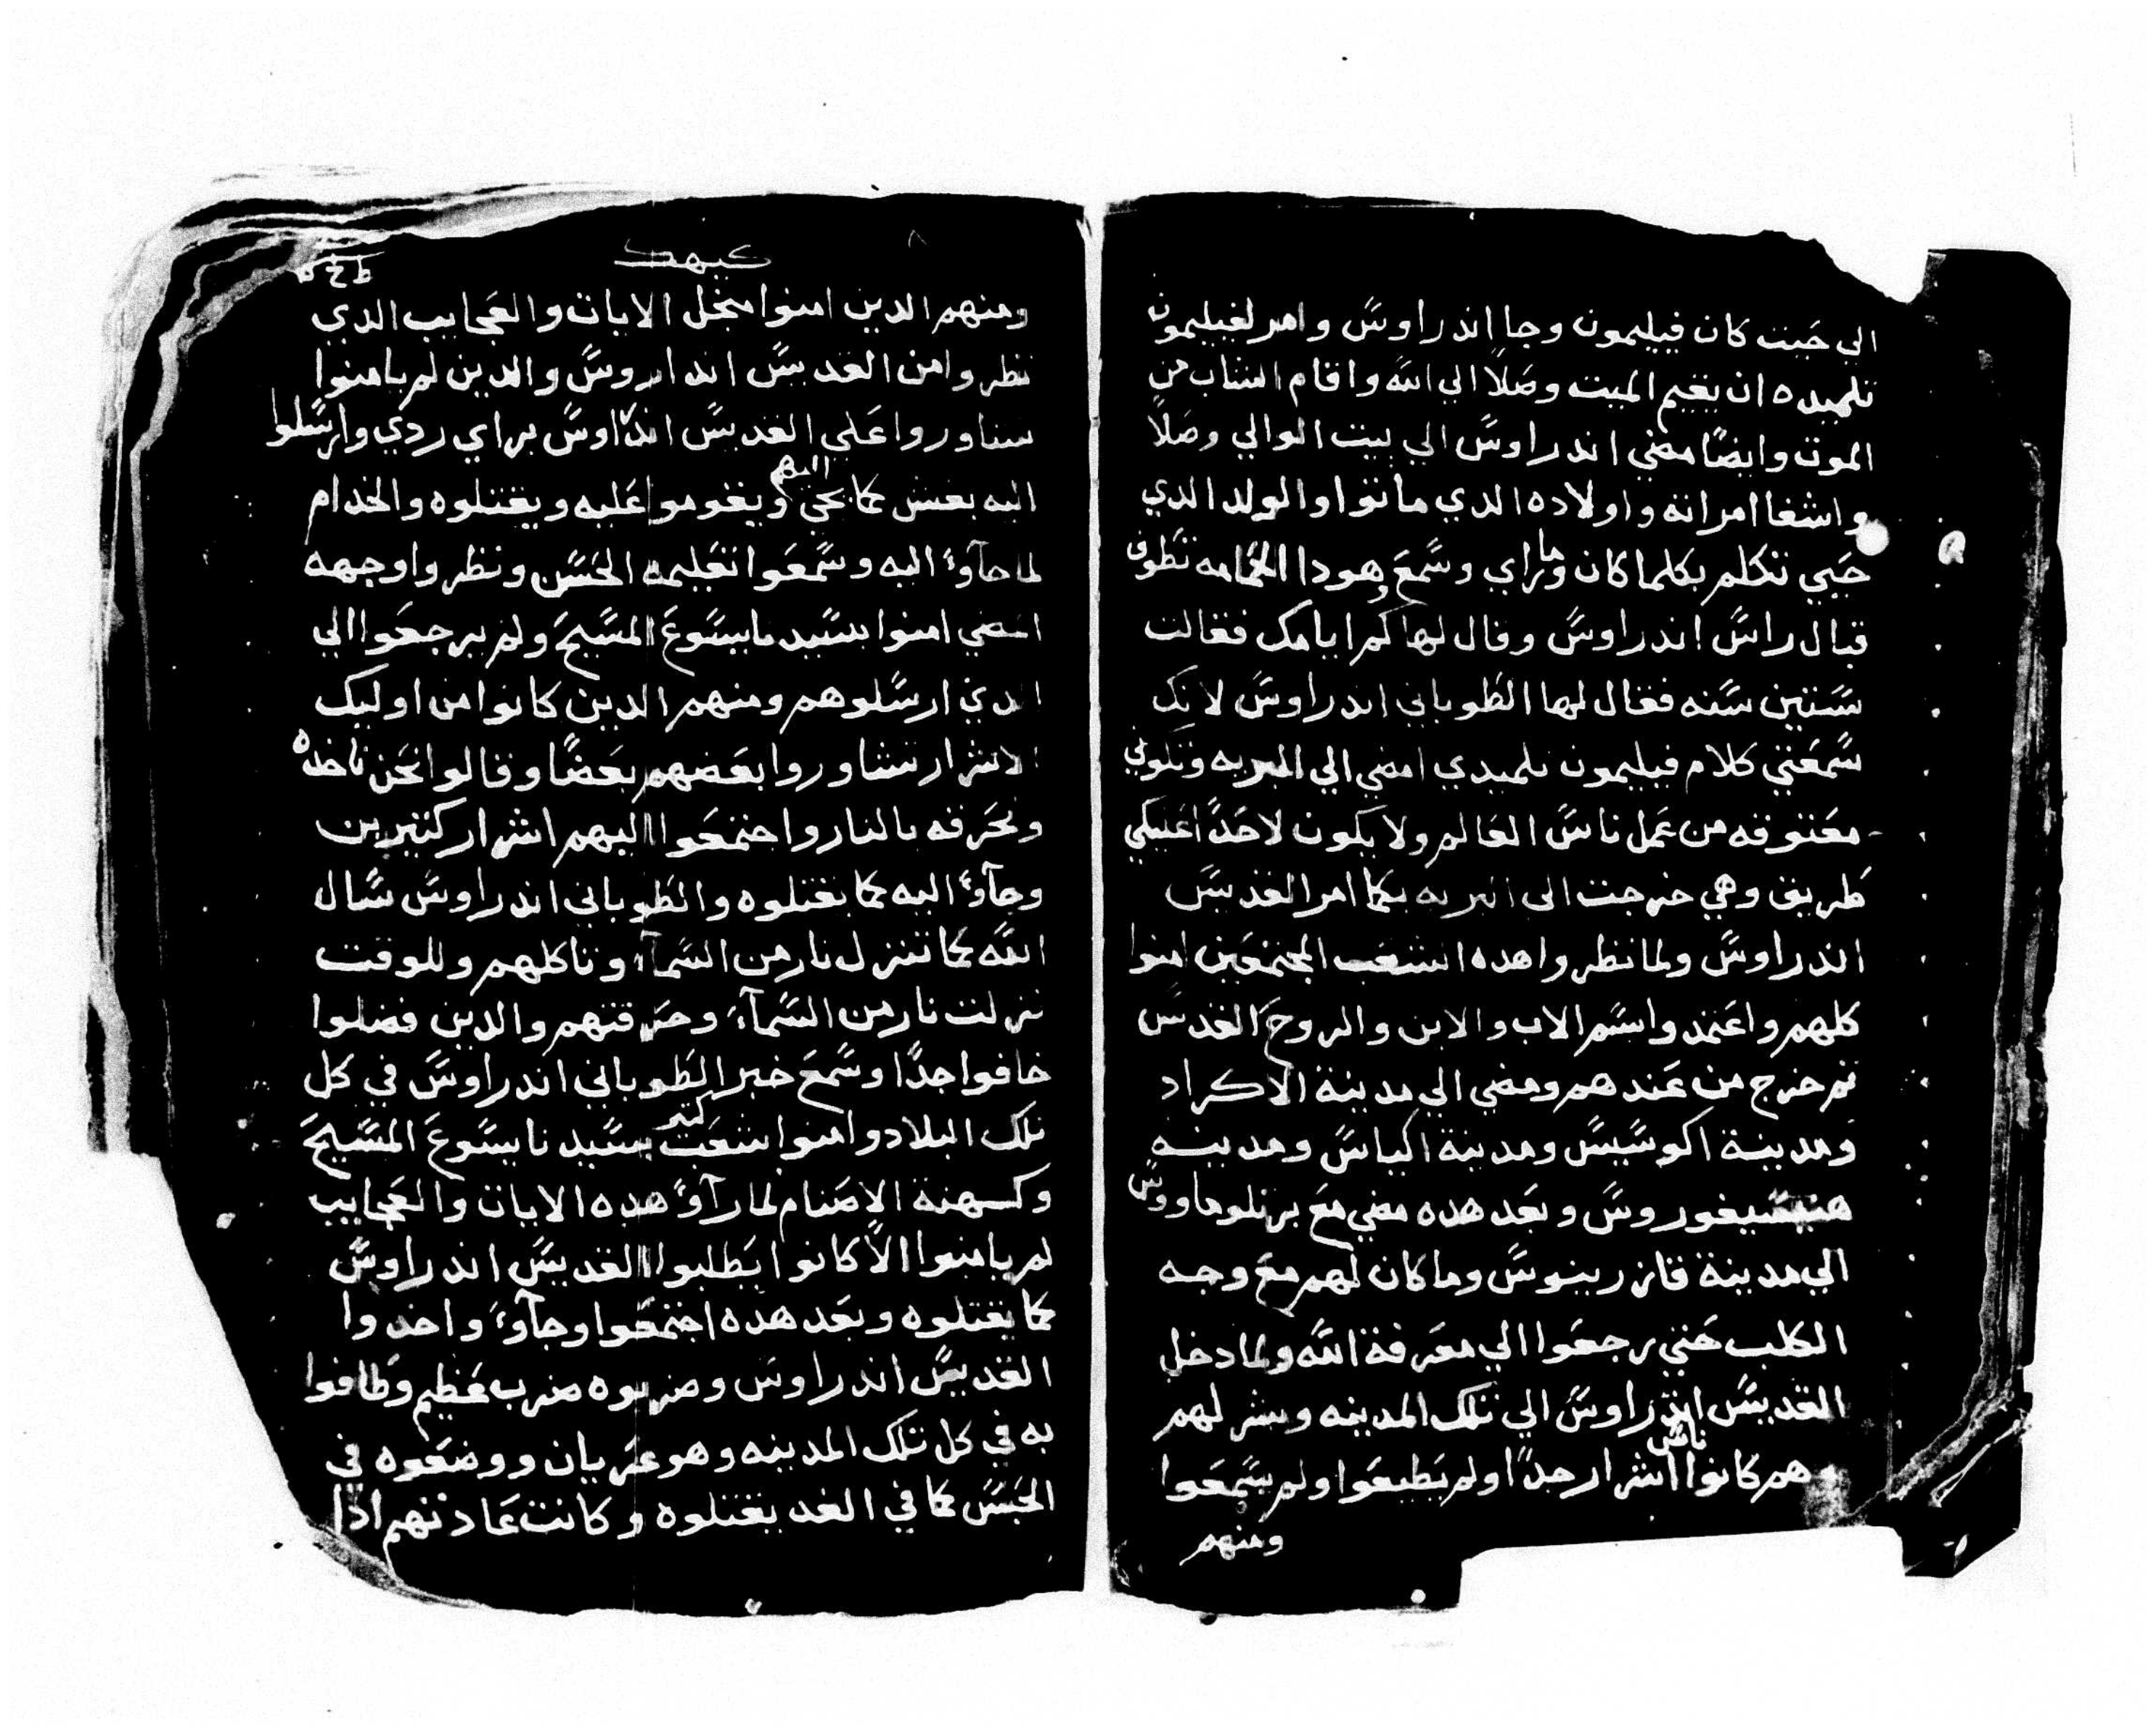 الي حيت كان فيليمون وجا اندراوس وامر لفيليمون
تلميده ان يقيم الميت وصلا الي الله واقام الشاب من
الموت وايضا مضي اندراوس الي بيت الوالي وصلا
واشفا امراته واولاده الدي ماتوا والولد الدي
حيي تكلم بكلما كان وما راي وسمع وهودا الحمامه تطوف
قبال راس اندراوس وقال لها كم ايامك فقالت
ستين سنه فقال لها الطوباني اندراوس لانك
سمعتي كلام فيليمون تلميدي امضي الي البريه وتكوني
معتوقه من عمل ناس العالم ولا يكون لاحدا عليكي
طريق وهي خرجت الى البريه بكما امر القديس
اندراوس ولما نظروا هده الشعب المجتمعين امنوا
كلهم واعتمدوا بسم الاب والابن والروح القدس
تم خرج من عندهم ومضي الي مدينة الاكراد
ومدينة اكوسيس ومدينة اكياس ومدينه
وبعد هده مضي مع برتلوماووس
الي مدينة قازرينوس وما كان لهم مع وجه
الكلب حتي رجعوا الي معرفة الله ولما دخل
القديس اندراوس الي تلك المدينه وبشر لهم
هم كانوا ناس اشرار جدا ولم يطيعوا ولم يسمعوا
ومنهم
كيهك
ومنهم الدين امنوا منجل الايات والعجايب الدي
نظروا من القديس اندراوس والدين لم يامنوا
تشاوروا علي القديس اندراوس براي ردي وارسلوا
اليه بغش كما يجي اليهم ويقوموا عليه ويقتلوه والخدام
لما جآوءا اليه وسمعوا تعليمه الحسن ونظروا وجهه
المضي امنوا بسيدنا يسوع المسيح ولم يرجعوا الي
الدي ارسلوهم ومنهم الدين كانوا من اوليك
الاشرار تشاوروا بعضهم بعضا وقالوا نحن ناخده
ونحرقه بالنار واجتمعوا اليهم اشرار كتيرين
وجآوءا اليه كما يقتلوه والطوباني اندراوس سال
الله كما تنزل نار من السمآء وتاكلهم وللوقت
نزلت نار من السمآء وحرقتهم والدين فضلوا
خافوا جدا وسمع خبر الطوباني اندراوس في كل
تلك البلاد وامنوا شعب كتير بسيدنا يسوع المسيح
وكهنة الاصنام لما رآوءا هده الايات والعجايب
لم يامنوا الا كانوا يطلبوا القديس اندراوس
كما يقتلوه وبعد هده اجتمعوا وجآوء واخدوا
القديس اندراوس وضربوه ضرب عظيم وطافوا
به في كل تلك المدينه وهو عريان ووضعوه في
الحبس كما في الغد يقتلوه وكانت عادتهم ادا